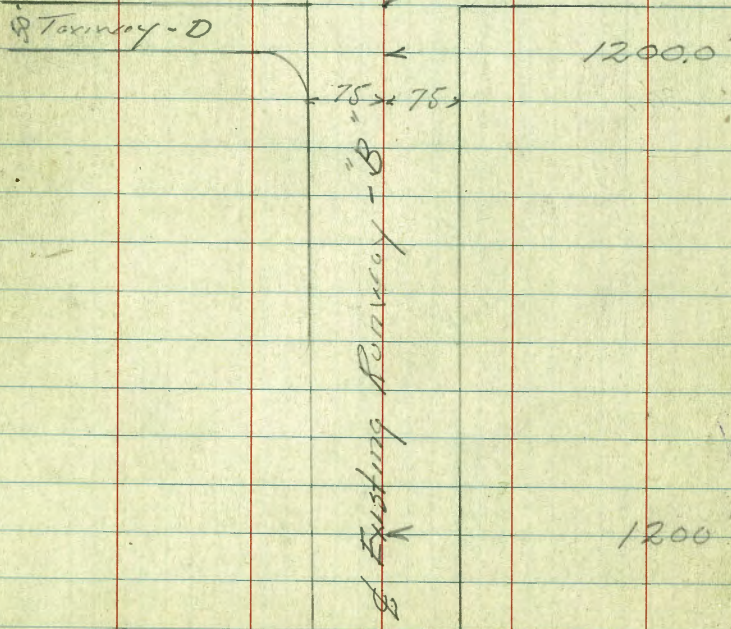 ℄ Taxiway - D
1200.0
75 75
℄ Existing Runway - "B"
1200